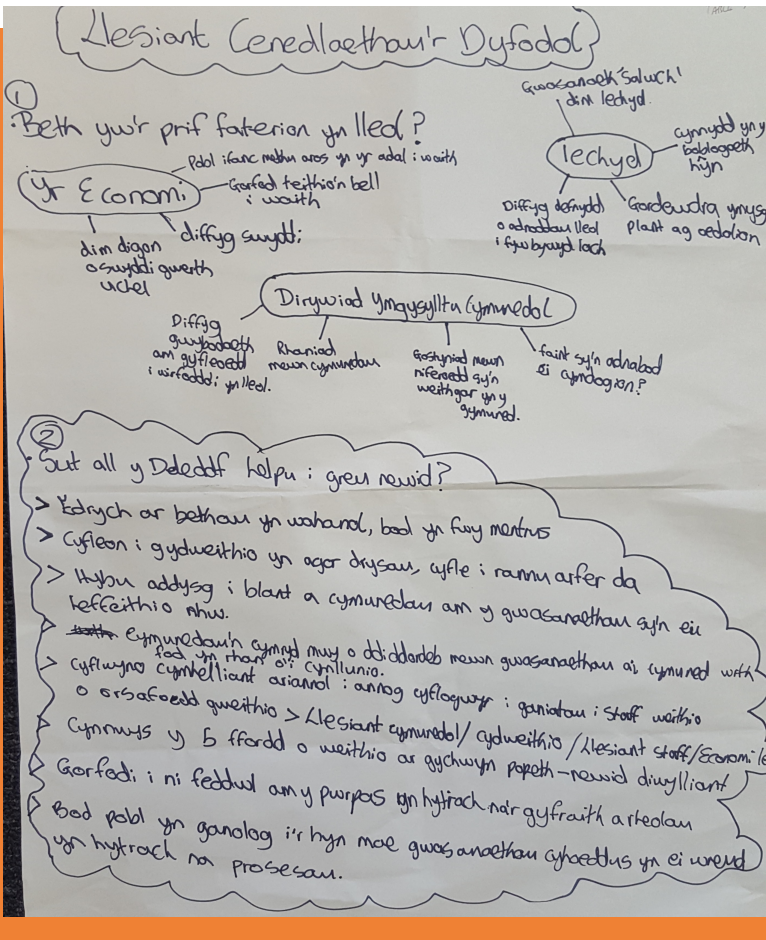 Llesiant Cenedlaethau'r Dyfodol
1
· Beth yw'r prif faterion yn lleol?
Yr Economi
Pobl ifanc methu aros yn yr adal i waith
Gorfod teithio'n bell
i waith
diffyg swyddi
dim digon
o swyddi gwerth
uchel
Iechyd
Gwasanaeth 'Salwch'
dim Iechyd.
cynnydd yn y
boblogaeth
hŷn
Diffyg defnydd
o adnoddau lleol
i fyw bywyd iach
Gordewdra ymysg
plant ag oedolion
Dirywiad Ymgysylltu Cymunedol
Diffyg
gwybodaeth
am gyfleoedd
i wirfoddoli yn lleol.
Rhaniad
mewn cymunedau
Gostyniad mewn
niferoedd sy'n
weithgar yn y
gymuned.
faint sy'n adnabod
ei cymdogion?
2
· Sut all y Ddeddf helpu i greu newid?
> Edrych ar bethau yn wahanol, bod yn fwy mentrus
> Cyfleon i gydweithio yn agor drysau, cyfle i rannu arfer da
> Hybu addysg i blant a cymunedau am y gwasanaethau sy'n eu
heffeithio nhw.
> cymunedau'n cymryd mwy o ddiddordeb mewn gwasanaethau a'i cymuned wrth
fod yn rhan o'i cynllunio.
> Cyflwyno cymhelliant ariannol i annog cyflogwyr i ganiatau i staff weithio
o orsafoedd gweithio > Llesiant cymunedol/ cydweithio /Llesiant staff/Economi
> Cynnwys y 5 ffordd o weithio ar gychwyn popeth - newid diwylliant
> Gorfodi i ni feddwl am y pwrpas yn hytrach na'r gyfraith a rheolau
> Bod pobl yn ganolog i'r hyn mae gwasanaethau cyhoeddus yn ei wneud
yn hytrach na prosesau.